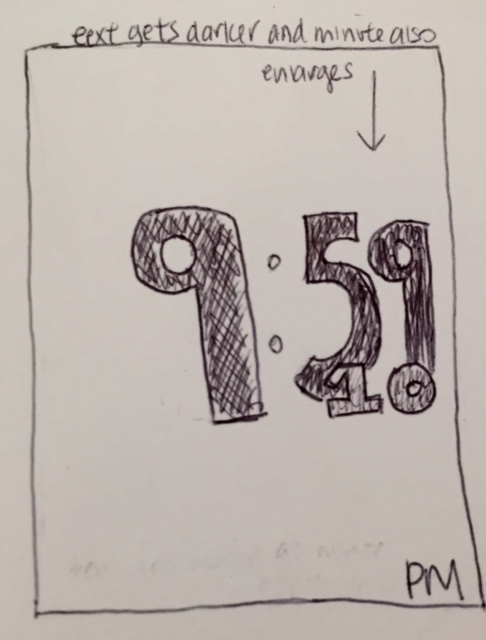 eext gets darker and minute also
enlarges
9:59
10
PM